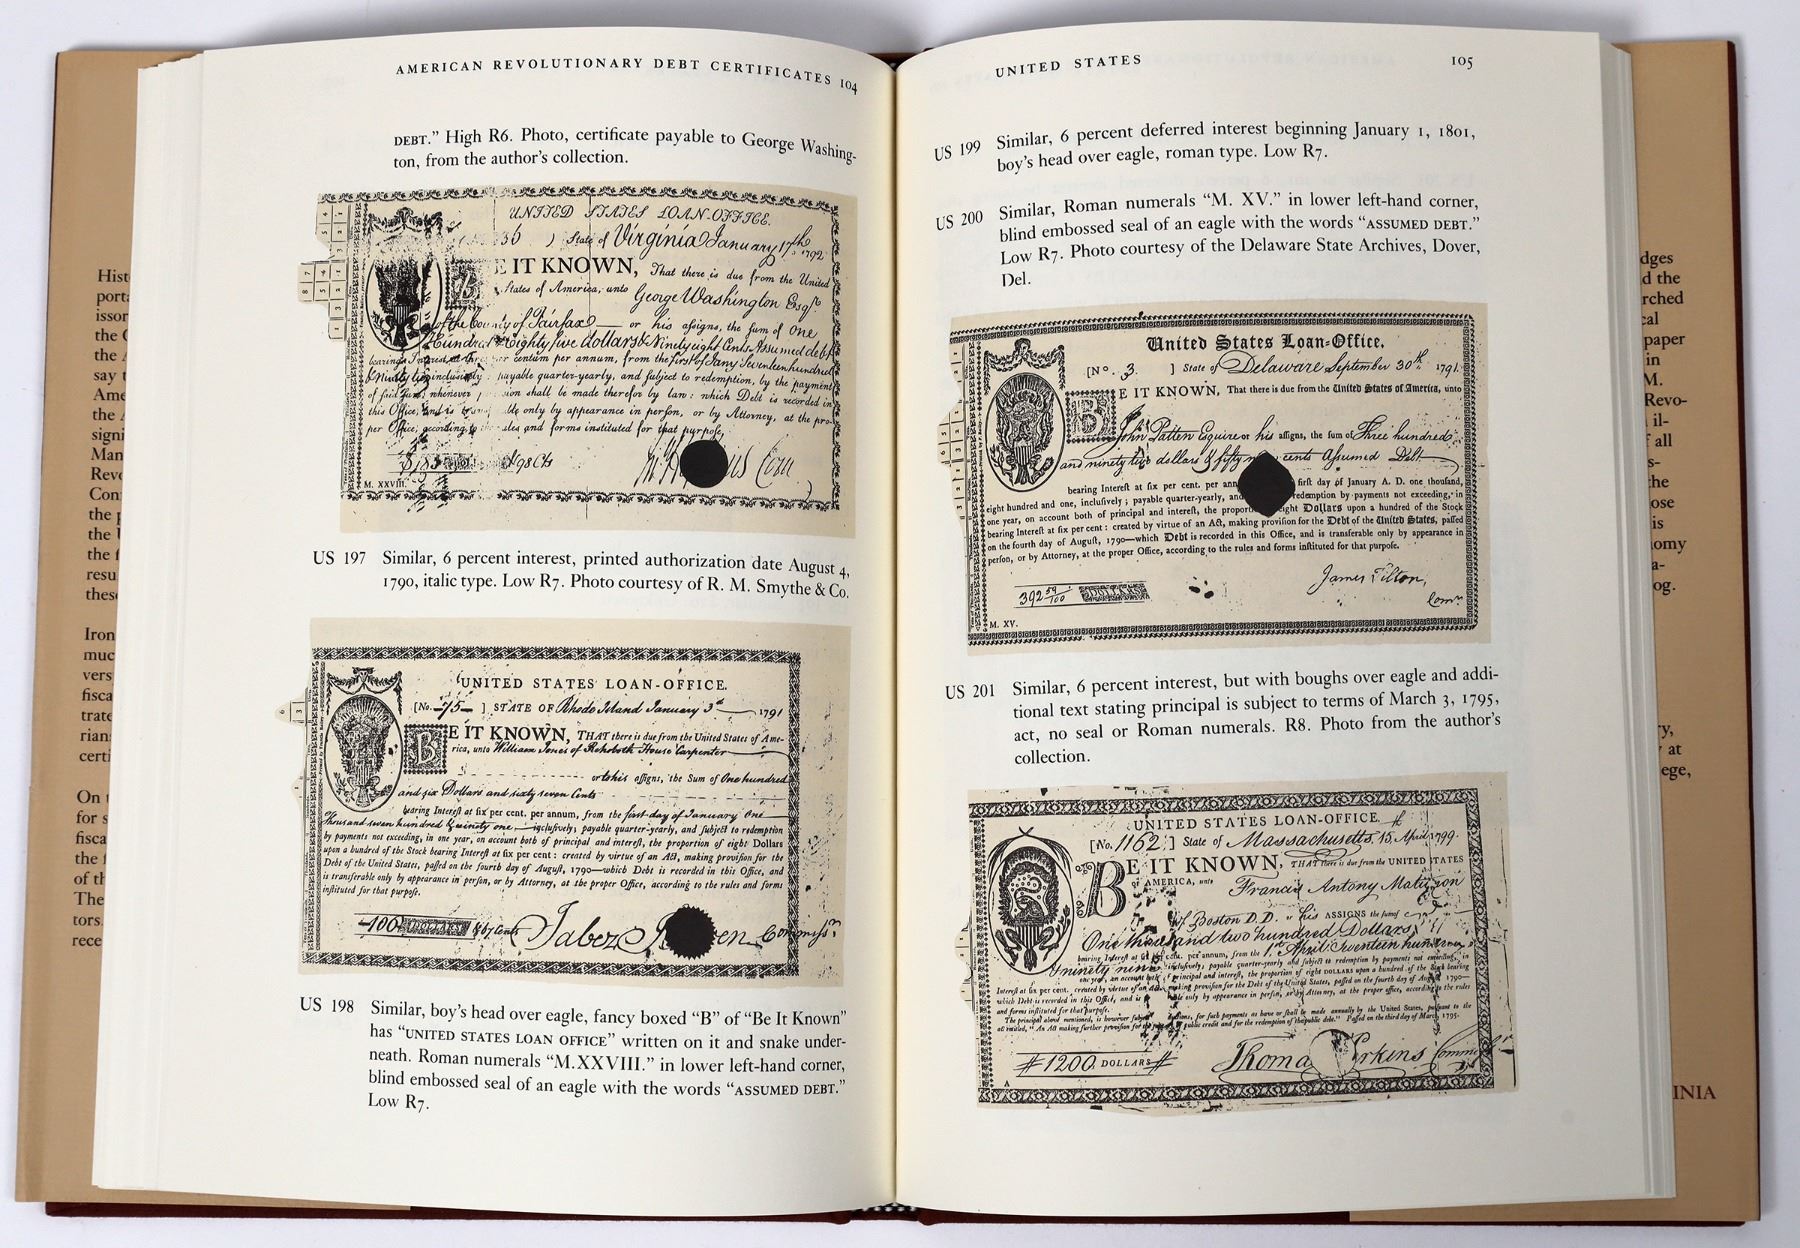 AMERICAN REVOLUTIONARY DEBT CERTIFICATES 104
DEBT." High R6. Photo, certificate payable to George Washing-
ton, from the author's collection.
UNITED STATES LOAN-OFFICE.
36 ) State of Virginia January 17th 1792
BE IT KNOWN, That there is due from the United
States of America, unto George Washington Esqr.
of the County of Fairfax or his assigns, the sum of One
Hundred Eighty five dollars & Ninety eight Cents Assumed debt
bearing Interest at three per centum per annum, from the First of Jany Seventeen hundred
& Ninety two inclusively: payable quarter-yearly, and subject to redemption, by the payment
of said sum, whenever provision shall be made therefor by law: which Debt is recorded in
this Office, and is transferable only by appearance in person, or by Attorney, at the pro-
per Office, according to rules and forms instituted for that purpose,
98 Cts
M. XXVIII.
US 197 Similar, 6 percent interest, printed authorization date August 4,
1790, italic type. Low R7. Photo courtesy of R. M. Smythe & Co.
UNITED STATES LOAN-OFFICE.
[No. 75 ] STATE OF Rhode Island January 3d 1791
BE IT KNOWN, THAT there is due from the United States of Ame-
rica, unto William Jones of Rehoboth House Carpenter
or his assigns, the Sum of One hundred
and six Dollars and sixty seven Cents
bearing Interest at six per cent. per annum, from the first day of January One
Thousand seven hundred & ninety one, inclusively; payable quarter-yearly, and subject to redemption
by payments not exceeding, in one year, on account both of principal and interest, the proportion of eight Dollars
upon a hundred of the Stock bearing Interest at six per cent: created by virtue of an Act, making provision for the
Debt of the United States, passed on the fourth day of August, 1790—which Debt is recorded in this Office, and
is transferable only by appearance in person, or by Attorney, at the proper Office, according to the rules and forms
instituted for that purpose.
DOLLARS 67 Cents Jabez Commissr.
US 198 Similar, boy's head over eagle, fancy boxed "B" of "Be It Known"
has "UNITED STATES LOAN OFFICE" written on it and snake under-
neath. Roman numerals "M.XXVIII." in lower left-hand corner,
blind embossed seal of an eagle with the words "ASSUMED DEBT."
Low R7.
UNITED STATES 105
US 199 Similar, 6 percent deferred interest beginning January 1, 1801,
boy's head over eagle, roman type. Low R7.
US 200 Similar, Roman numerals "M. XV." in lower left-hand corner,
blind embossed seal of an eagle with the words "ASSUMED DEBT."
Low R7. Photo courtesy of the Delaware State Archives, Dover,
Del.
United States Loan-Office.
[No. 3. ] State of Delaware September 30th 1791
BE IT KNOWN, That there is due from the United States of America, unto
John Patten Esquire or his assigns, the sum of Three hundred
and ninety two dollars & fifty nine cents Assumed Debt
bearing Interest at six per cent. per ann first day of January A. D. one thousand,
eight hundred and one, inclusively; payable quarter-yearly, and redemption by payments not exceeding, in
one year, on account both of principal and interest, the proport eight Dollars upon a hundred of the Stock
bearing Interest at six per cent: created by virtue of an Act, making provision for the Debt of the United States, passed
on the fourth day of August, 1790—which Debt is recorded in this Office, and is transferable only by appearance in
person, or by Attorney, at the proper Office, according to the rules and forms instituted for that purpose.
James Tilton,
392 59/100 DOLLARS Comr
M. XV.
US 201 Similar, 6 percent interest, but with boughs over eagle and addi-
tional text stating principal is subject to terms of March 3, 1795,
act, no seal or Roman numerals. R8. Photo from the author's
collection.
UNITED STATES LOAN-OFFICE.
[No. 1162 ] State of Massachusetts 15 April 1799.
BE IT KNOWN, THAT there is due from the UNITED STATES
of AMERICA, unto Francis Antony Matignon
of Boston D.D. or his ASSIGNS the sum of
One thousand two hundred Dollars
bearing Interest at six per cent. per annum, from the 1st April Seventeen hundred
& ninety nine inclusively; payable quarter-yearly, and subject to redemption by payments not exceeding, in
one year, on account both of principal and interest, the proportion of eight DOLLARS upon a hundred of the Stock bearing
Interest at six per cent. created by virtue of an Act making provision for the Debt of the United States, passed on the fourth day of August 1790
which Debt is recorded in this Office, and is only by appearance in person, or by attorney, at the proper office, according to the rules
and forms instituted for that purpose.
The principal above mentioned, is however subject for such payments as have or shall be made annually by the United States, pursuant to the
act entitled, "An Act making further provision for the public credit and for the redemption of the public debt." Passed on the third day of March, 1795.
# 1200 DOLLARS # Thoma Perkins
A
INIA